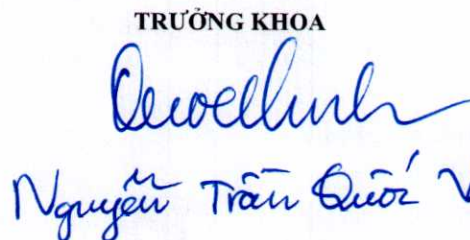 TRƯỞNG KHOA
Nguyễn Trần Quốc